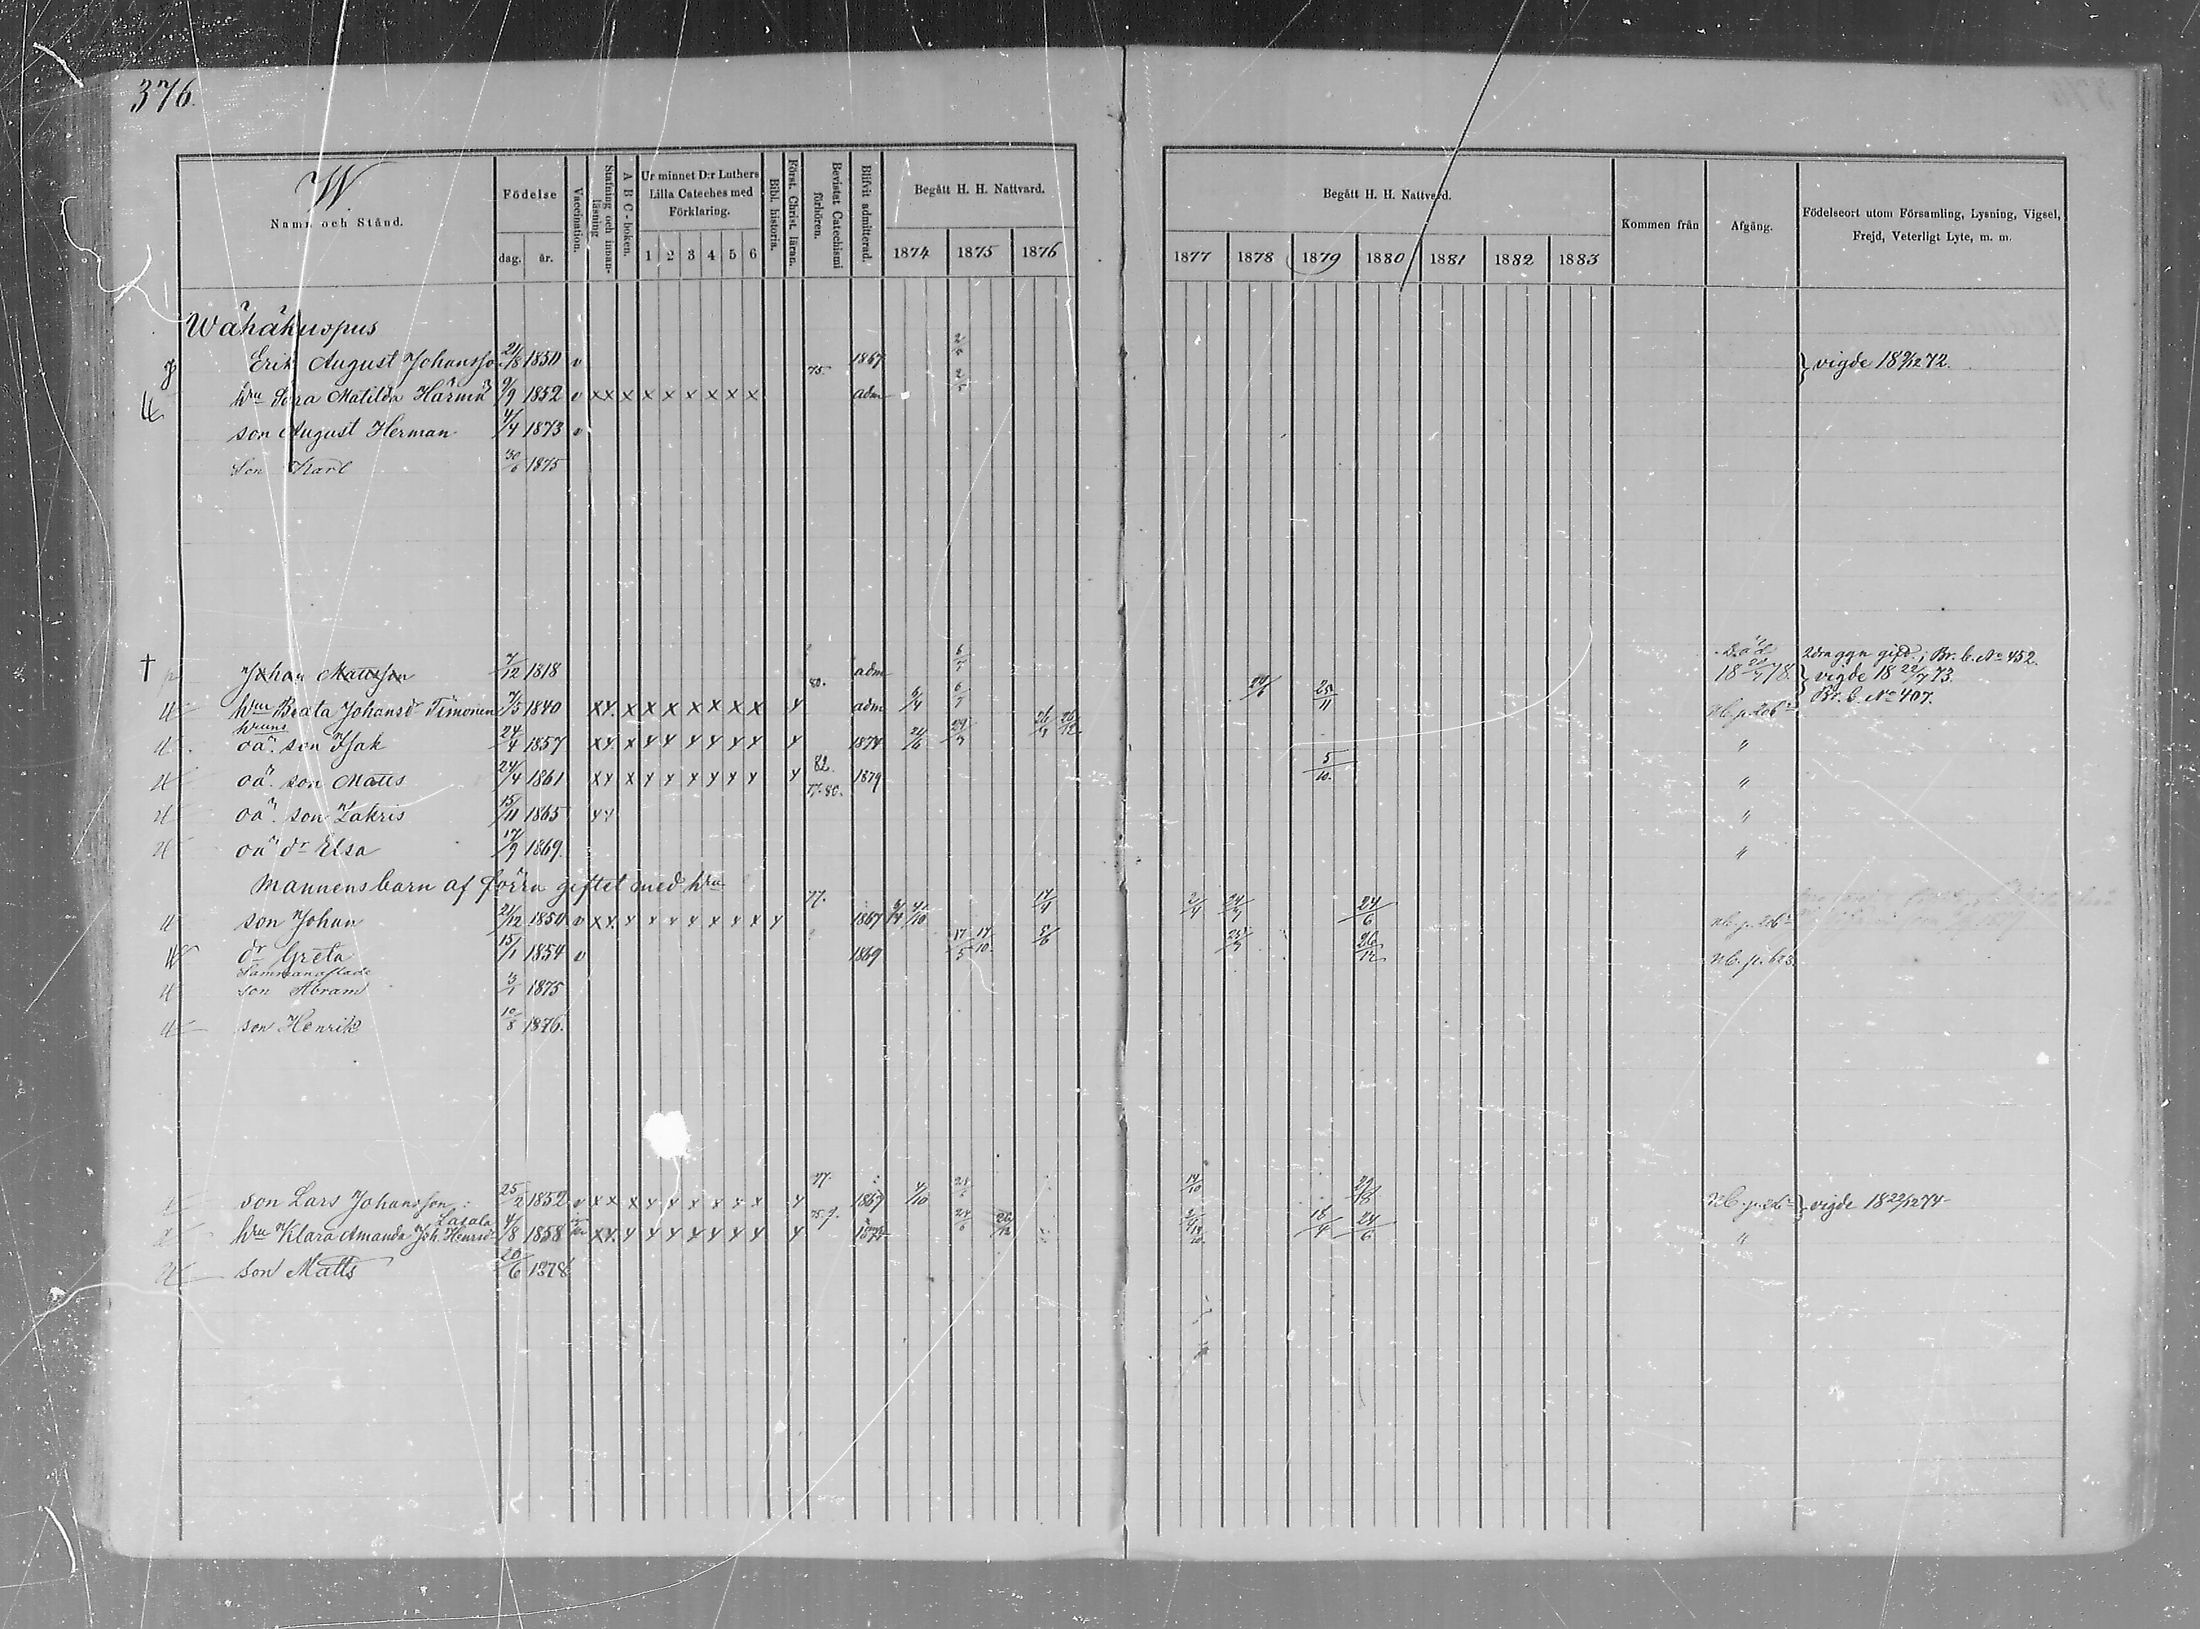 376.
W
Namn och Stånd.
Födelse
dag.
år.
Vaccination.
Stafning och innanläsning
A B C-boken.
Ur minnet D:r Luthers Lilla Cateches med Förklaring.
1 2 3 4 5 6
Bibl. historia.
Först. Christ. läran.
Bevistat Catechismi förhören.
Blifvit admitterad.
Begått H. H. Nattvard.
1874 1875 1876
Begått H. H. Nattvard.
1877 1878 1879 1880 1881 1882 1883
Kommen från
Afgång.
Födelseort utom Församling, Lysning, Vigsel, Frejd, Veterligt Lyte, m. m.
Wähäkuopus
Erik August Johansson 21/8 1850 v 75. 1867 2/5 } vigde 18 9/12 72.
hru Sofia Matilda Härmä 9/9 1852 v x x x x x x x x x adm 2/5
son August Herman 4/4 1873 v
Son Karl 30/6 1875
† Johan Mattsson 7/12 1818 adm 6/5 Död 2dra ggn gift; Br. b. No 452.
80. } vigde 18 22/7 73.
hru Beata Johansdr Timonen 7/5 1840 x x x x x x x x x x adm 24/6 25/11 Br. b. No 407.
hruns
oä. son Isak 24/4 1857 x x x x x x x x x x 1874 "
oä. son Matts 24/4 1861 x x x x x x x x x x 82. 77. 80. 1879 5/10. "
oä. son Zakris 15/11 1865 x x "
oä dr Elsa 17/9 1869. "
Mannens barn af förra giftet med hru
son Johan 21/12 1850 v x x x x x x x x x x 77. 1867 17/4 2/4 24/6
dr Greta 15/1 1854 v 1869 17/5 17/10 26/12
Sammanaflade
son Abram 3/1 1875
son Henrik 10/8 1876.
son Lars Johansson 25/2 1852 v x x x x x x x x x x 77. 1867 4/10 14/10 } vigde 18 22/12 74
hru Klara Amanda Joh. Henrsdr Lasala 4/8 1858 x x x x x x x x x x 24/6 26/12 18/4 24/6 "
son Matts 20/6 1878